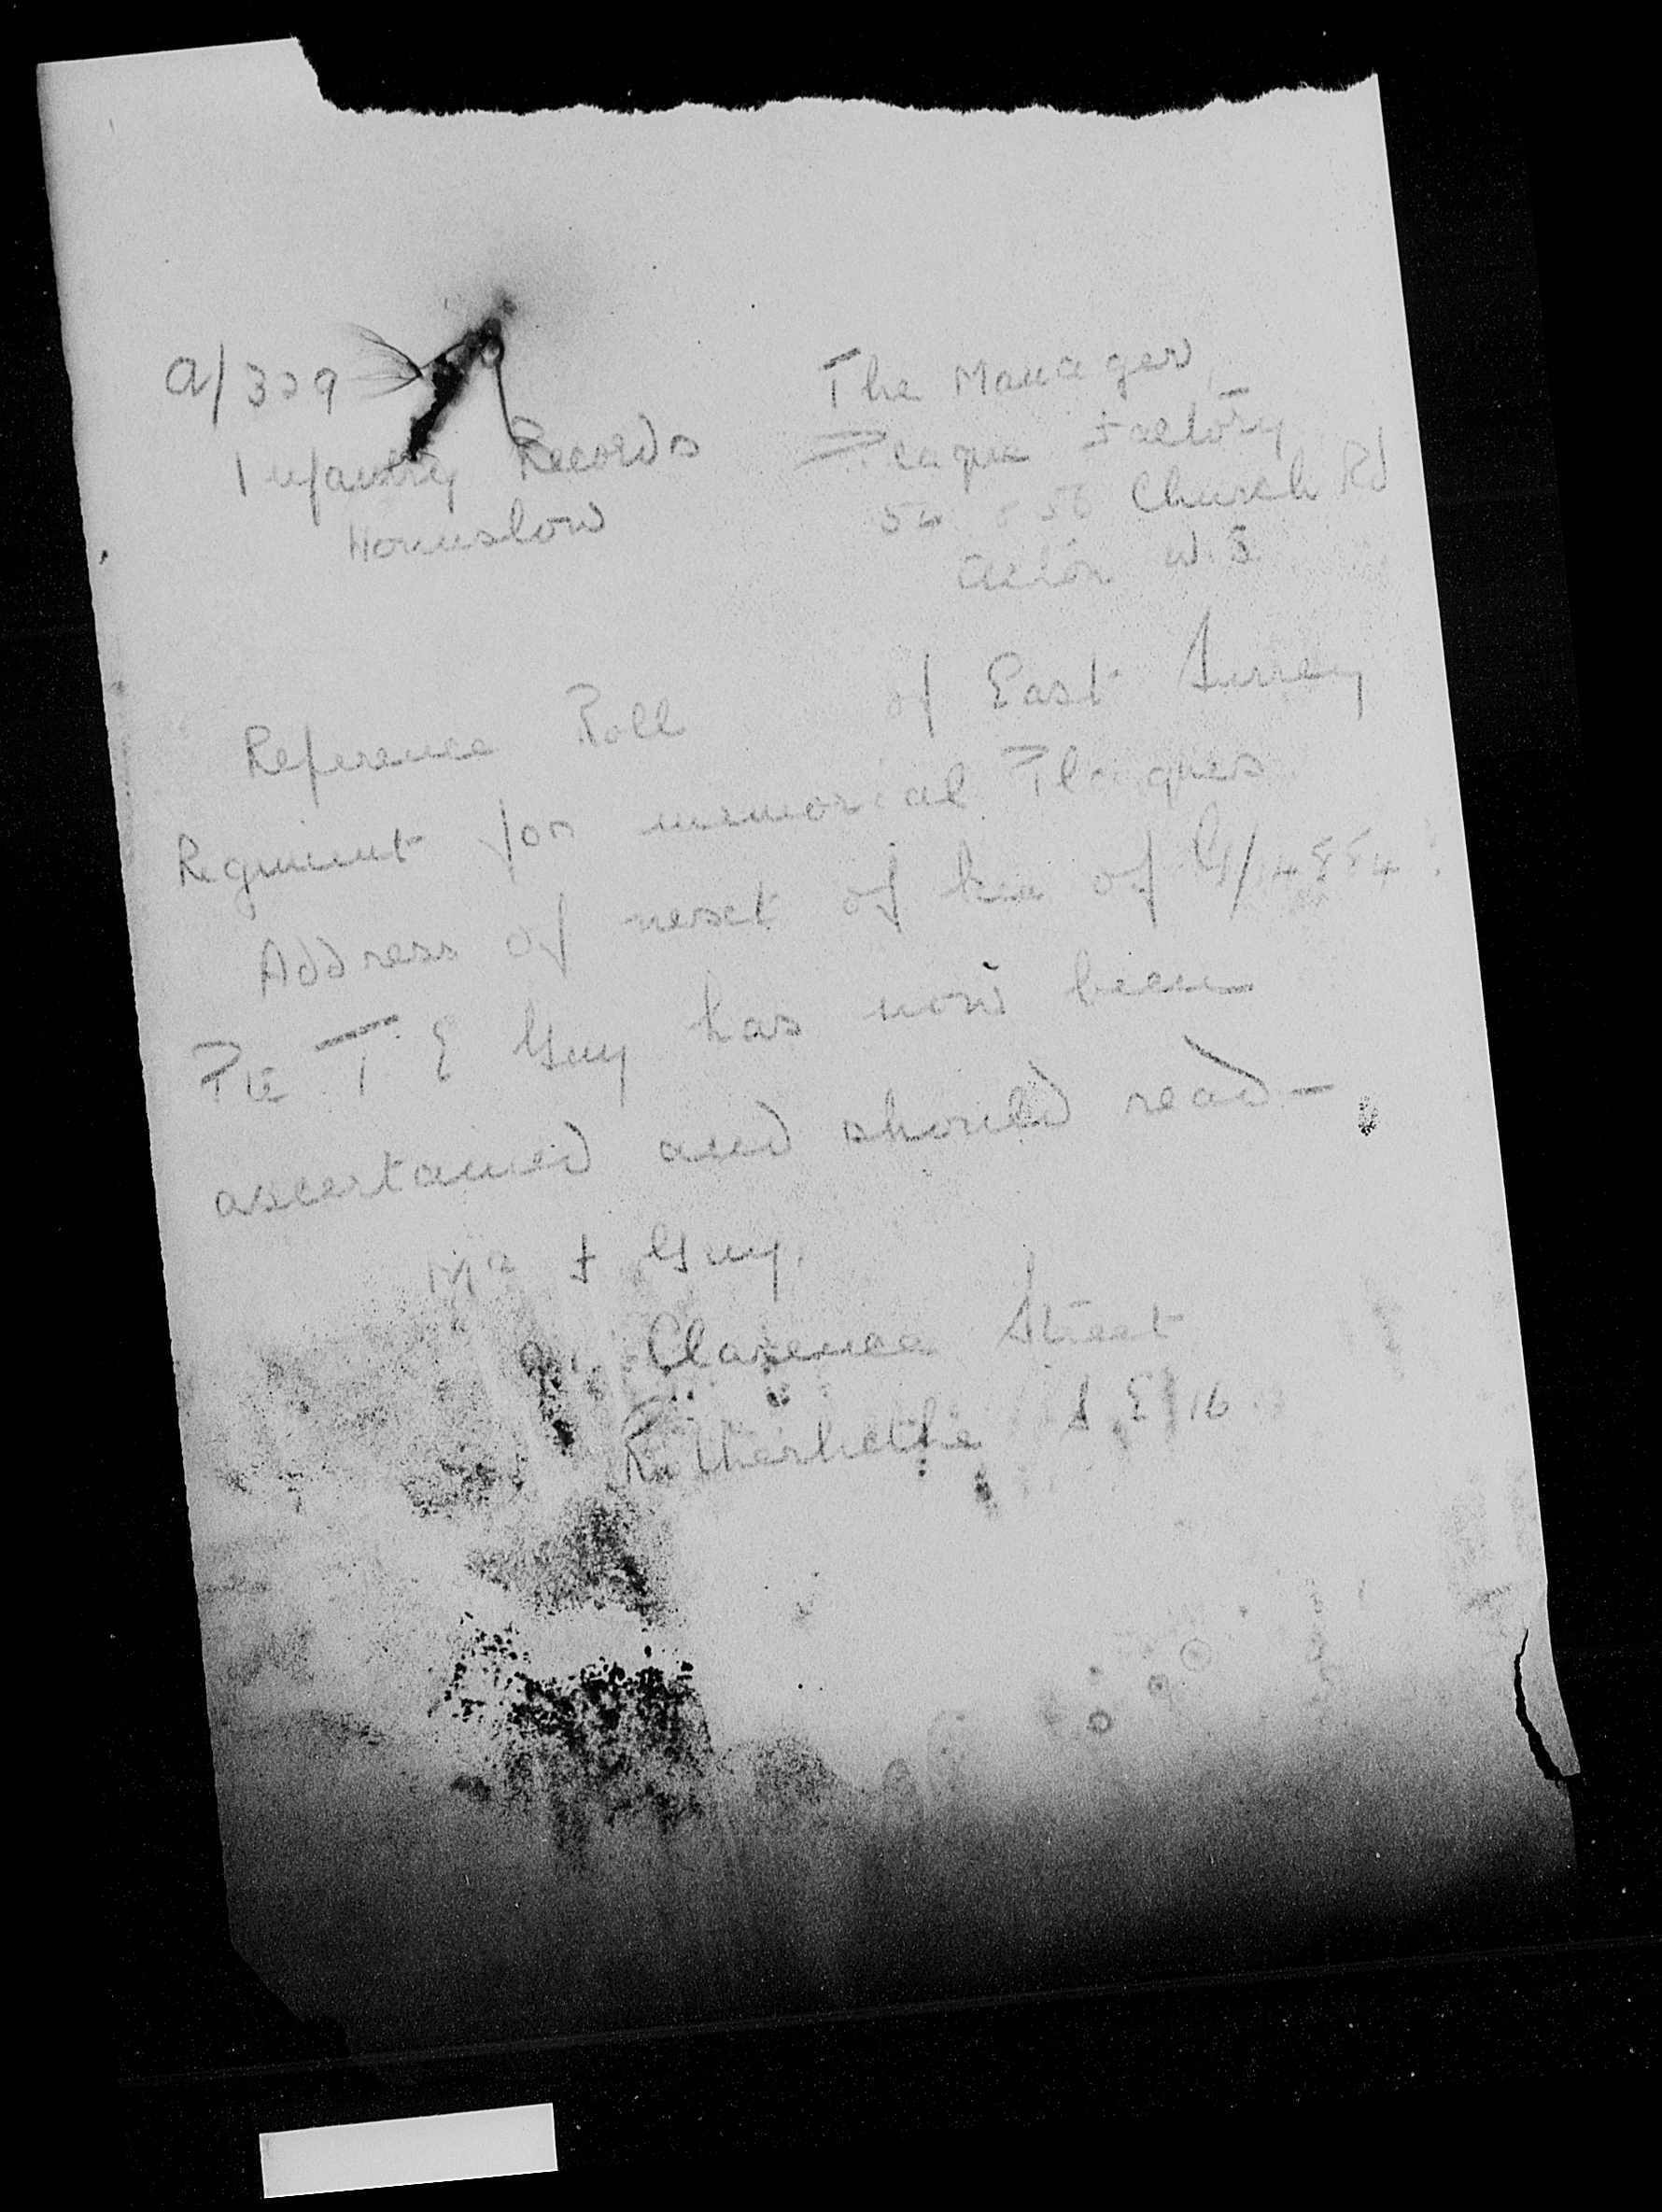 a/329
Infantry Records
Hounslow
The Manager,
Plaque Factory
54 & 56 Church Rd
Acton W.3.
Reference Roll of East Surrey
Regiment for memorial Plaques.
Address of next of kin of G/4884
Pte T. E Guy has now been
ascertained and should read —
Mr F Guy.
Clarence Street
Rotherhithe S.E 16.